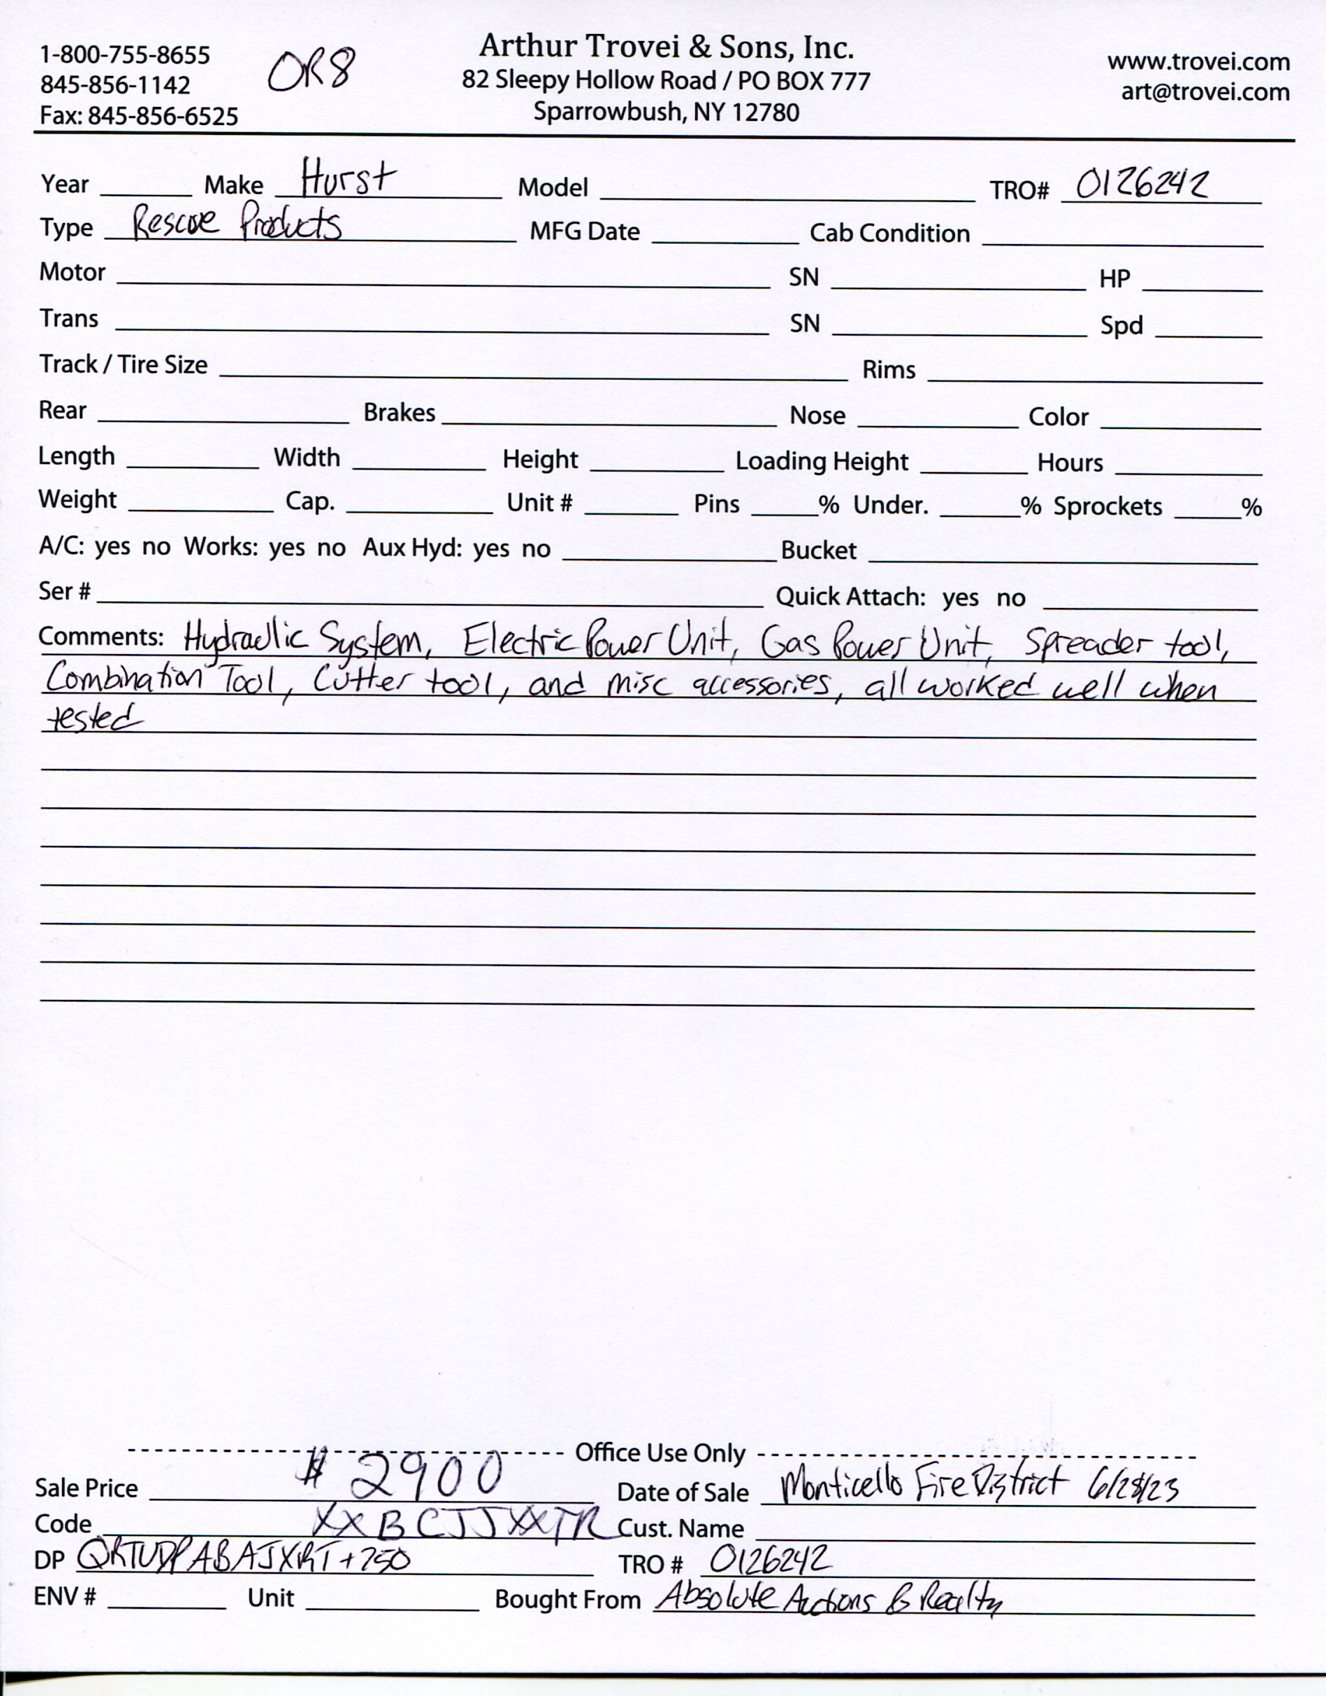 1-800-755-8655
845-856-1142
Fax: 845-856-6525
OR8
Arthur Trovei & Sons, Inc.
82 Sleepy Hollow Road / PO BOX 777
Sparrowbush, NY 12780
www.trovei.com
art@trovei.com
Year Make Hurst Model TRO# 0126242
Type Rescue Products MFG Date Cab Condition
Motor SN HP
Trans SN Spd
Track / Tire Size Rims
Rear Brakes Nose Color
Length Width Height Loading Height Hours
Weight Cap. Unit # Pins % Under. % Sprockets %
A/C: yes no Works: yes no Aux Hyd: yes no Bucket
Ser # Quick Attach: yes no
Comments: Hydraulic System, Electric Power Unit, Gas Power Unit, Spreader tool,
Combination Tool, Cutter tool, and misc accessories, all worked well when
tested
Office Use Only
Sale Price $2900 Date of Sale Monticello Fire District 6/28/23
Code XXBCJJXXTR Cust. Name
DP TRO # 0126242
ENV # Unit Bought From Absolute Auctions & Realty